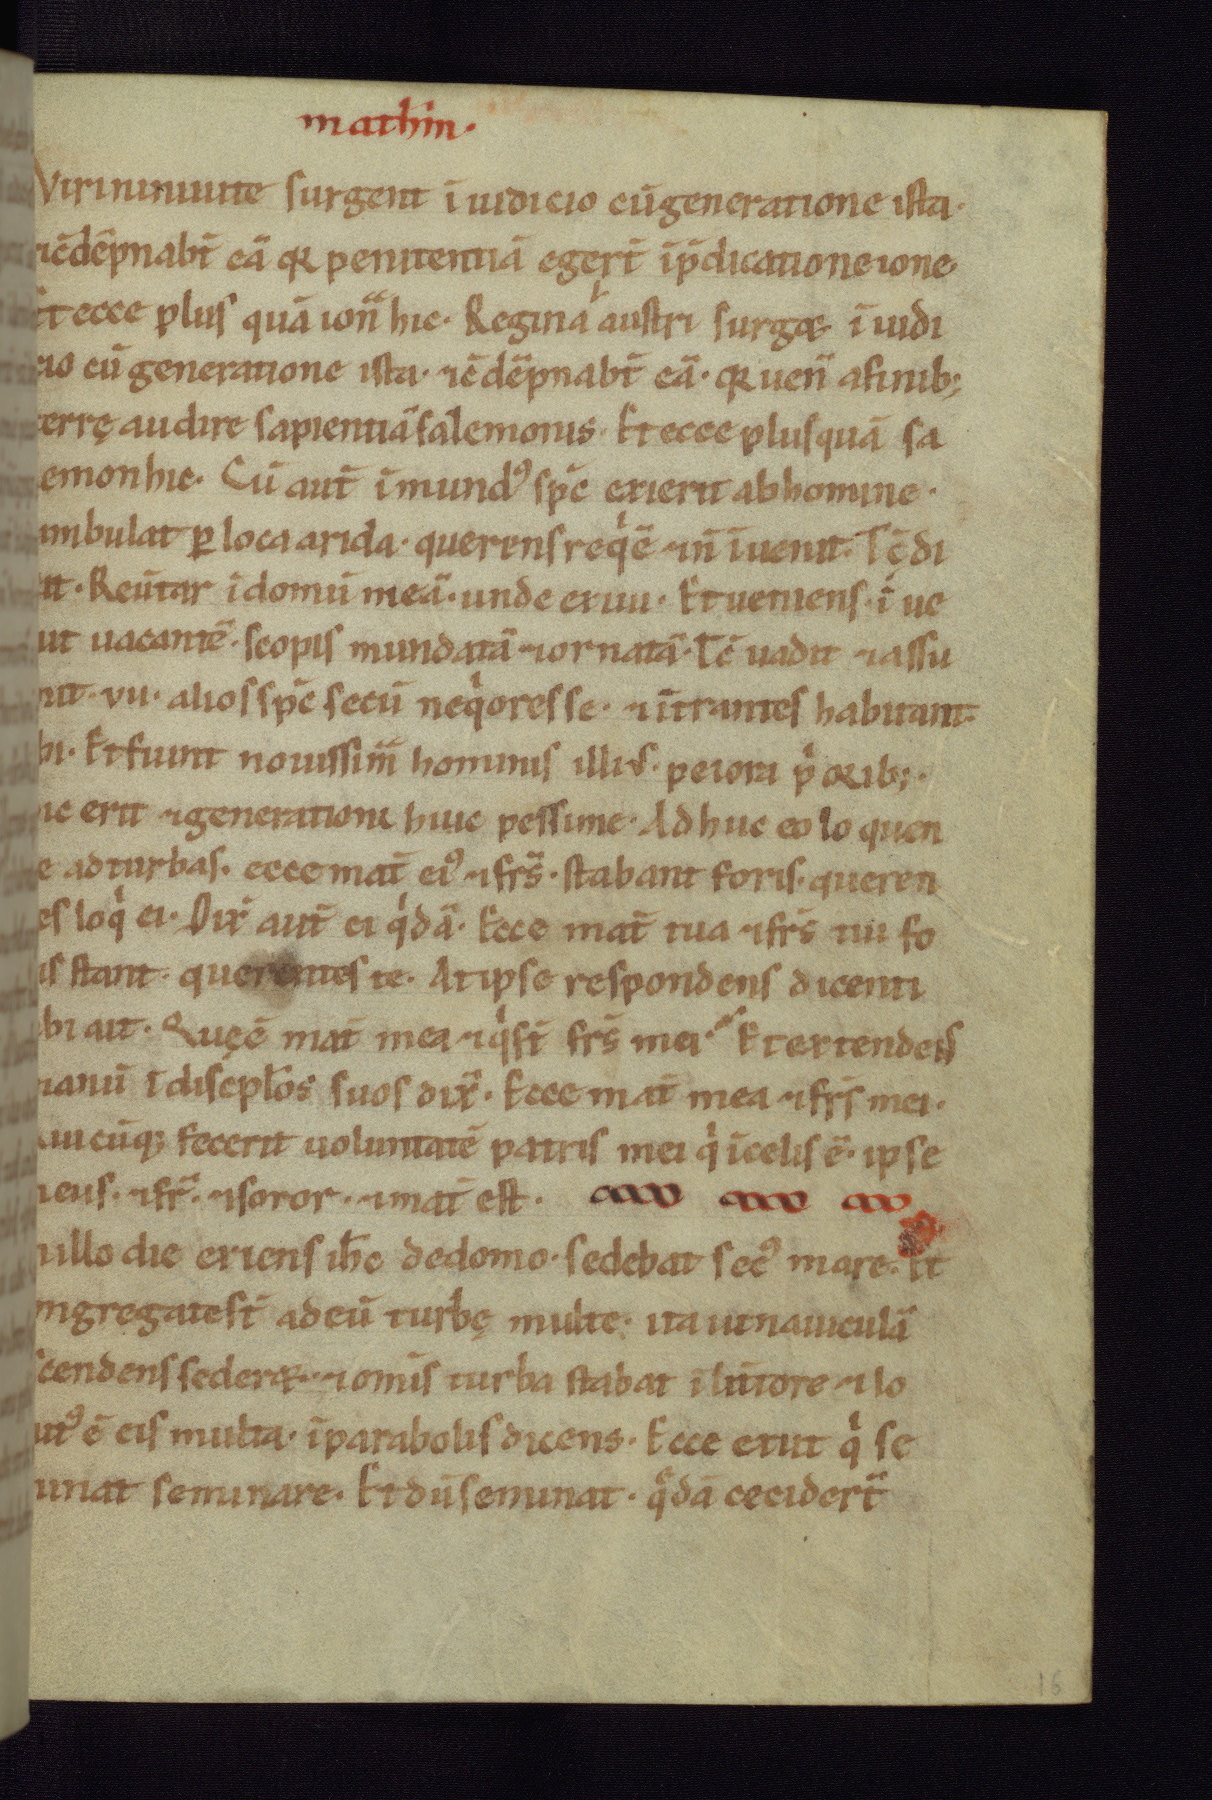 mathm·
Viri niniuite surgent ī iudicio cū generatione ista·
⁊ cōdēpnabt̄ eā qꝛ penitentiā eger̄t īp̄dicatione ione
Et ecce plus quā ion̄ hic· Regina austri surgæ ī iudi
cio cū generatione ista· ⁊ cōdēpnabt̄ eā· qꝛ uen̄ a finib;
terrę audire sapientiā salemonis· Et ecce plus quā sa
lemon hic· Cū aut̄ īmundꝰ sp̄c exierit ab homine·
ambulat ꝑ loca arida· querens reqͥē ⁊ n̄ īuenit· Tc̄ di
cit· Reūtar ī domū meā· unde exiui· Et ueniens· īue
nit uacantē· scopis mundatā ⁊ ornatā· Tc̄ uadit ⁊ assu
mit· vii· alios sp̄c secū neqͥores se· ⁊ īt̄rantes habitant
ibi· Et fiunt nouissim̄ hominis illiꝰ· peiora pͥorib;·
sic erit ⁊ generationi huic pessime· Adhuc eo loquen
te ad turbas· ecce mat̄ eiꝰ ⁊ fr̄s· stabant foris· queren
tes loqͥ ei· Dix̄ aut̄ ei qͥdā· Ecce mat̄ tua ⁊ fr̄s tui fo
ris stant· querentes te· At ipse respondens dicenti
sibi ait· Quęē mat̄ mea ⁊ qͥ st̄ fr̄s mei· Et extendens
manū ī discipl̄os suos dix̄· Ecce mat̄ mea ⁊ fr̄s mei·
Quicūqꝫ fecerit uoluntatē patris mei qͥ ī celis ē· ipse
meus· ⁊ fr̄· ⁊ soror· ⁊ mat̄ est·
n illo die exiens ih̄c de domo· sedebat secꝰ mare· Et
congregate st̄ ad eū turbę multe· ita ut nauiculā
ascendens sederæ· ⁊ om̄is turba stabat ī litore ⁊ lo
cutꝰ ē eis multa· ī parabolis dicens· Ecce exiit qͥ se
minat seminare· Et dū seminat· qͣdā cecider̄t
16